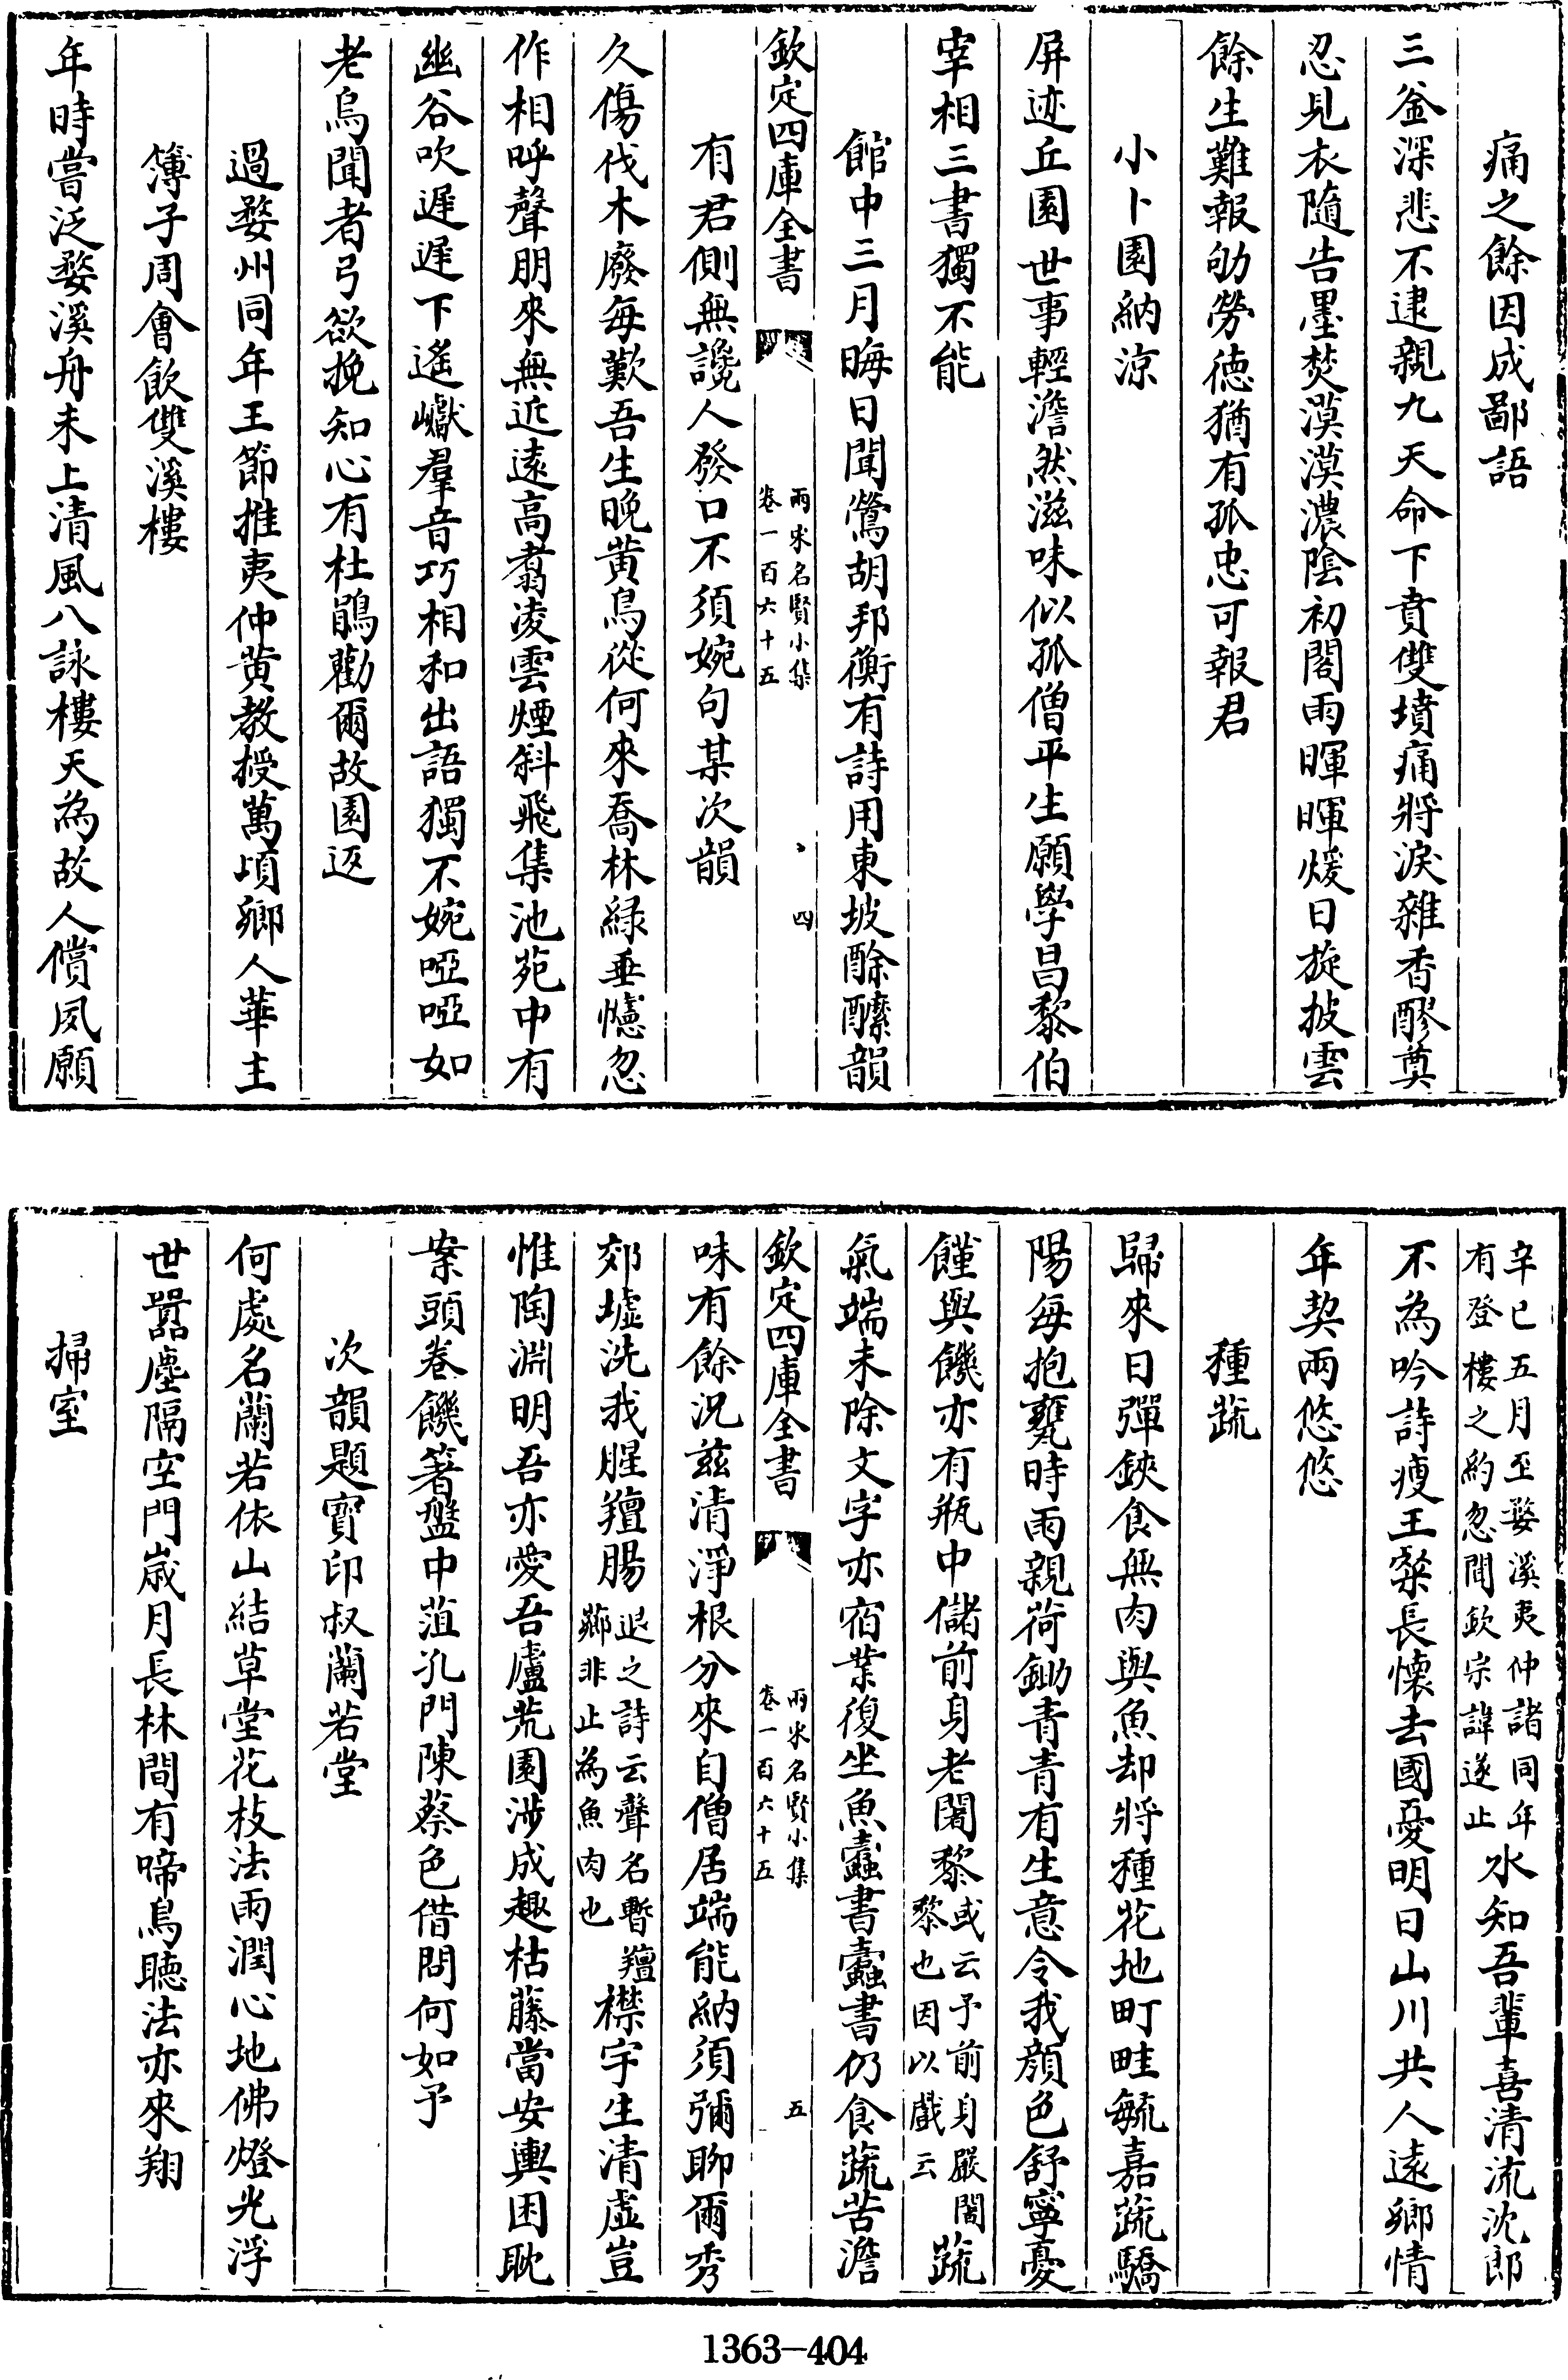 痛之餘因成鄙語
三釡深悲不逮親九天命下賁雙墳痛將淚雜香醪奠
忍見衣隨告墨焚漠漠濃陰初閣雨暉暉煖日旋披雲
餘生難報劬勞徳猶有孤忠可報君
小卜園納涼
屏迹丘園世事輕澹然滋味似孤僧平生願學昌黎伯
宰相三書獨不能
館中三月晦日聞鶯胡邦衡有詩用東坡酴醾韻
欽定四庫全書
兩宋名賢小集
卷一百六十五
四
有君側無讒人發口不須婉句某次韻
久傷伐木廢每歎吾生晚黄鳥從何來喬林緑垂幰忽
作相呼聲朋來無近遠高翥凌雲煙斜飛集池苑中有
幽谷吹遲遲下遙巘羣音巧相和出語獨不婉啞啞如
老烏聞者弓欲挽知心有杜鵑勸爾故園返
過婺州同年王節推夷仲黄教授萬頃鄉人華主
簿子周會飲雙溪樓
年時嘗泛婺溪舟未上清風八詠樓天為故人償夙願
辛巳五月至婺溪夷仲諸同年
有登樓之約忽聞欽宗諱遂止
水知吾輩喜清流沈郎
不為吟詩瘦王粲長懷去國憂明日山川共人遠鄉情
年契兩悠悠
種蔬
歸來日彈鋏食無肉與魚却將種花地町畦毓嘉蔬驕
陽每抱甕時雨親荷鋤青青有生意令我顔色舒寧憂
饉與饑亦有瓶中儲前身老闍黎
或云予前身嚴闍
黎也因以戲云
蔬
氣端未除文字亦宿業復坐魚蠧書蠧書仍食蔬苦澹
欽定四庫全書
兩宋名賢小集
卷一百六十五
五
味有餘況兹清淨根分來自僧居端能納須彌聊爾秀
郊墟洗我腥羶腸
退之詩云聲名暫羶
薌非止為魚肉也
襟宇生清虚豈
惟陶淵明吾亦愛吾廬荒園涉成趣枯藤當安輿困耽
案頭卷饑箸盤中菹孔門陳蔡色借問何如予
次韻題寶印叔蘭若堂
何處名蘭若依山結草堂花枝法雨潤心地佛燈光浮
世嚣塵隔空門歳月長林間有啼鳥聴法亦來翔
掃室
1363-404